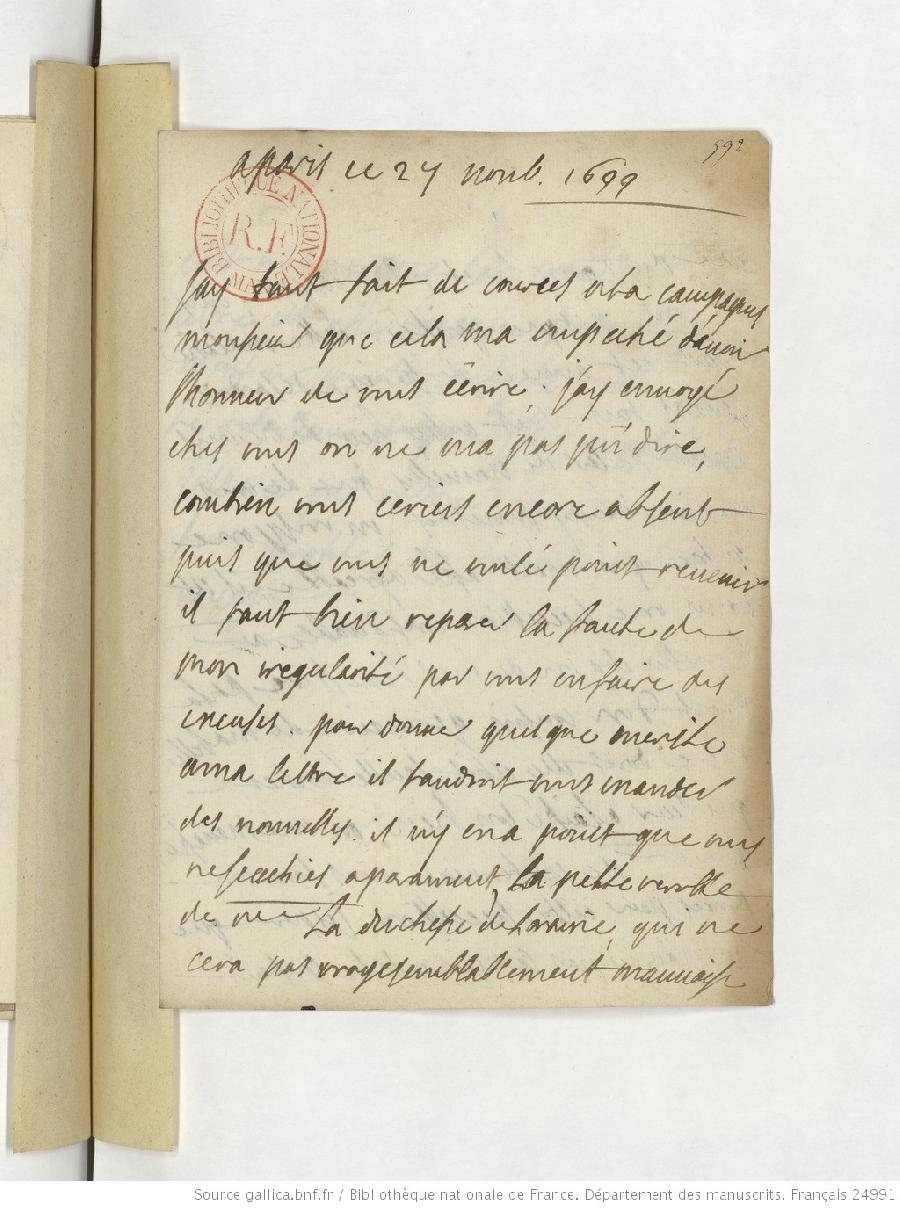 592
aparis ce 27 noub. 1699
BIBLIOTHEQUE NATIONALE MAN
R.F.
jay tant fait de cources ala campagne
monsieur que cela ma enpeché dauoir
lhonneur de vous écrire, jay enuoyé
ches vous on ne ma pas pu dire,
combien vous ceriés encore absent
puis que vous ne voulé point reuenir
il faut bien reparer la faute de
mon iregularité par vous en faire des
excuses. pour donner quelque merite
ama lettre il faudroit vous mander
des nouuelles. il ny en a point que vous
ne scachies aparament, la petite verolle
de me La duchesse de Loraine, qui ne
cera pas vraysemblablement mauuaise
Source gallica.bnf.fr / Bibliothèque nationale de France. Département des manuscrits. Français 24991